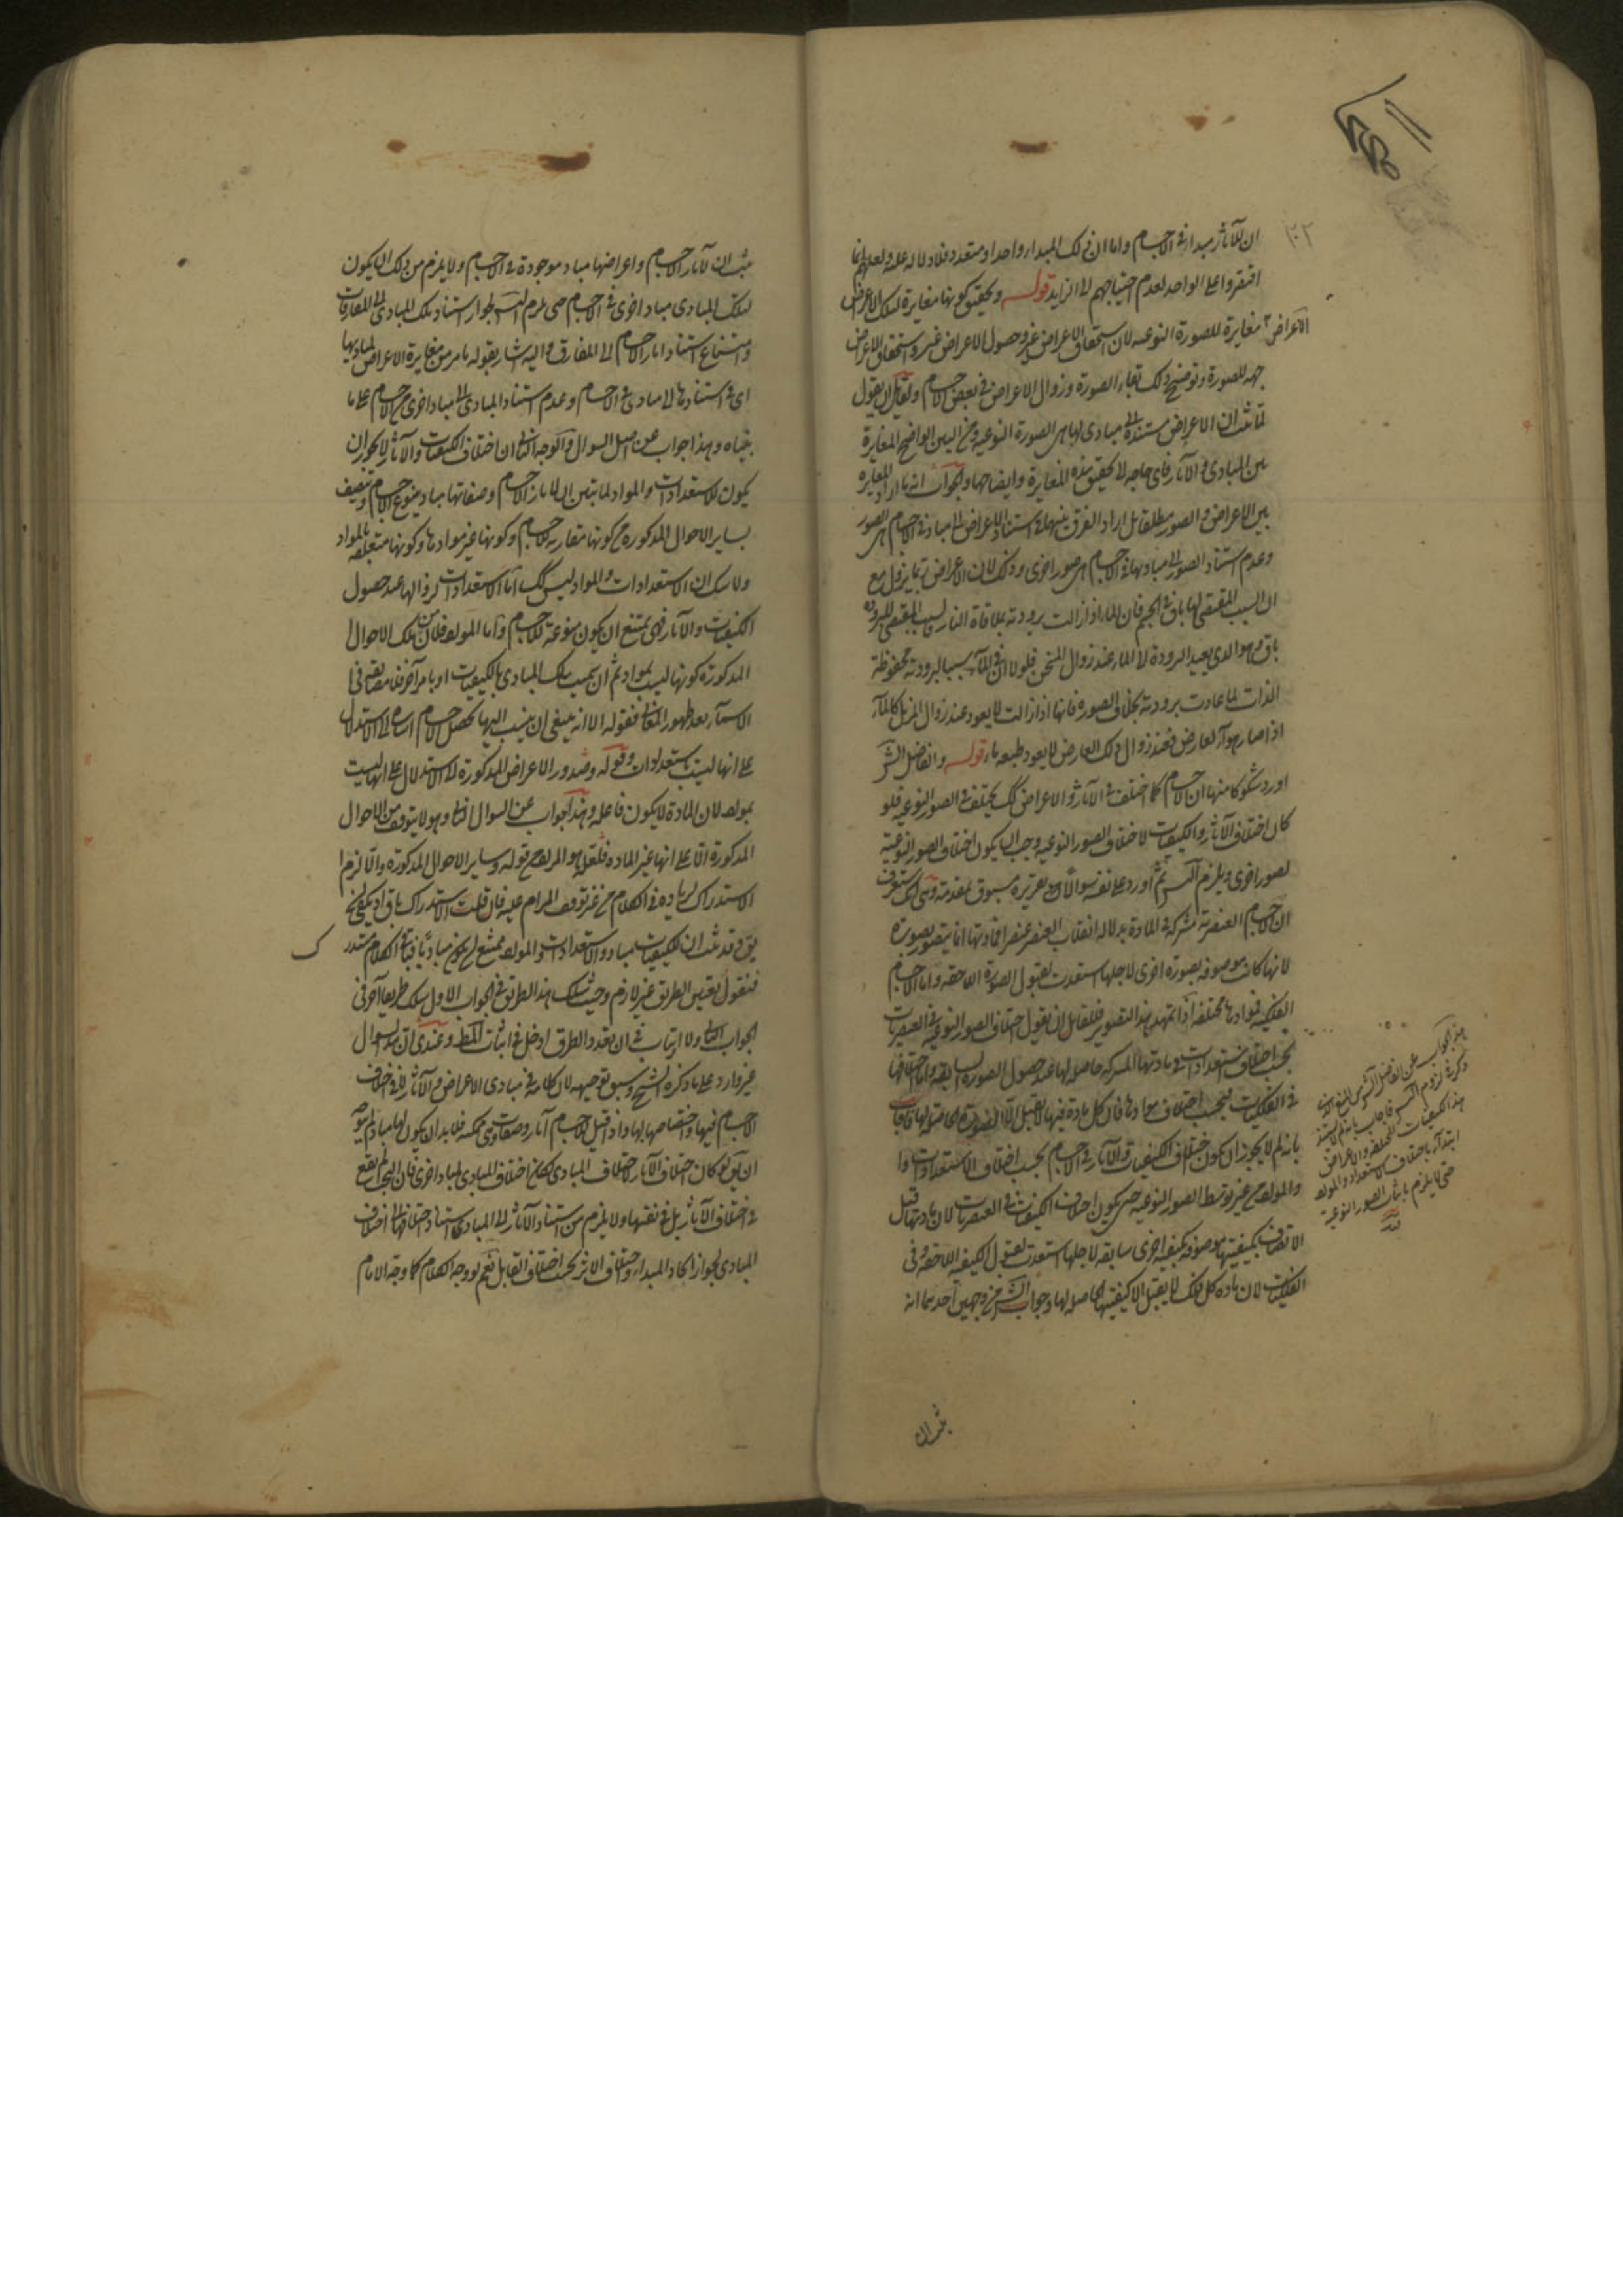 ان للآثار مبدا فى الاجسام واما ان ذلك المبداء واحد او متعدد فلا دلالة عليه ولعلهم انما
اقتصروا على الواحد لعدم احتياجهم الى الزايد قوله وتحقيق كونها مغايرة لتلك الاعراض
الاعراض مغايرة للصورة النوعية لان استحقاق الاعراض غير وحصول الاعراض غير واستحقاق الاعراض
جهة للصورة وتوضيح ذلك بقاء الصورة وزوال الاعراض فى بعض الاجسام ولقائل ان يقول
لما ثبت ان الاعراض مستندة الى مبادى لها هى الصورة النوعية ومن البين الواضح المغايرة
بين المبادى والآثار فاى حاجة الى تحقيق هذه المغايرة وايضاحها والجواب انه ما اراد المغايرة
بين الاعراض والصور مطلقا بل اراد الفرق بينهما فى استناد الاعراض الى مباد فى الاجسام هى الصور
وعدم استناد الصور الى مباديها فى الاجسام هى صور اخرى وذلك لان الاعراض ربما يزول مع
ان السبب المقتضى لها باق فى الجسم فان الماء اذا زالت برودته بملاقاة النار والسبب المقتضى للبرودة
باق وهو الذى يعيد البرودة الى الماء عند زوال المسخن فلولا ان فى الماء سببا لبرودته محفوظة
الذات لما عادت برودته بخلاف الصورة فانها اذا زالت لا يعود عند زوال المزيل كالماء
اذا صار هواء لعارض فعند زوال ذلك العارض لا يعود طبعه ماء قوله والفاضل الشر
اورد شكوكا منها ان الاجسام كما اختلف فى الآثار والاعراض كك يختلف فى الصور النوعية فلو
كان اختلاف الآثار والكيفيات لاختلاف الصور النوعية وجب ان يكون اختلاف الصور النوعية
لصور اخرى ويلزم التس ثم اورد على نفسه سوالا
ان الاجسام العنصرية مشتركة فى المادة بدلالة انقلاب العنصر عنصرا فمادتها انما يتصور بصورة
لانها كانت موصوفة بصورة اخرى لاجلها استعدت لقبول الصورة اللاحقة واما الاجسام
الفلكية فموادها مختلفة اذا تمهد هذا التصوير فلقائل ان يقول اختلاف الصور النوعية فى العنصريات
بحسب اختلاف استعدادات فى مادتها المشتركة حاصلة لها عند حصول الصورة السابقة واما اختلافها
فى الفلكيات فبحسب اختلاف موادها فان كل مادة فيها لا تقبل الا الصورة الحاصلة لها
بانه لم لا يجوز ان يكون اختلاف الكيفيات والآثار فى الاجسام بحسب اختلاف الاستعدادات
والمواد من غير توسط الصور النوعية حتى يكون اختلاف الكيفيات فى العنصريات لان مادتها قبل
الاتصاف بكيفيتها موصوفة بكيفية اخرى سابقة لاجلها استعدت لقبول الكيفية اللاحقة وفى
الفلكيات لان مادة كل فلك لا يقبل الا كيفيتها الحاصلة لها وجواب الش من وجهين احدهما انه
هذا جواب عن الفاضل الشر
ذكره لزوم التس فاجاب بانه لم لا يستند
هذا الكيفيات المختلفة والاعراض
ابتداء باختلاف الاستعداد والمواد
حتى لا يلزم باثبات الصور النوعية
ثبت ان
ثبت ان لآثار الاجسام واعراضها مباد موجودة فى الاجسام ولا يلزم من ذلك ان يكون
لتلك المبادى مباد اخرى فى الاجسام حتى يلزم التس لجواز استناد تلك المبادى الى المفارقات
وامتناع استناد اثار الاجسام الى المفارق واليه اشار بقوله ما مر من مغايرة الاعراض لمباديها
اى فى استنادها الى مبادى فى الاجسام وعدم استناد المبادى الى مباد اخرى فى الاجسام على ما
بيناه وهذا جواب عن اصل السوال والوجه الثانى ان اختلاف الكيفيات والآثار لا يجوز ان
يكون للاستعدادات والمواد لما تبين ان لآثار الاجسام وصفاتها مباد ينوع الاجسام ويتصف
بساير الاحوال المذكورة من كونها مقارنة للاجسام وكونها غير موادها وكونها متعلقة بالمواد
ولا شك ان الاستعدادات والمواد ليس كك اما الاستعدادات فلزوالها عند حصول
الكيفيات والآثار فهى يمتنع ان يكون منوعة للاجسام واما المواد فلان من تلك الاحوال
المذكورة كونها ليست بمواد ثم ان سميت تلك المبادى بالكيفيات او بامر آخر فلا مضايقة فى
الاسماء بعد ظهور المعنى فقوله الا انه ينبغى ان ينسب اليها تحصل الاجسام اشارة الى الاستدلال
على انها ليست باستعدادات وقوله وصدور الاعراض المذكورة الى الاستدلال على انها ليست
بمواد لان المادة لا يكون فاعلة وهذا جواب عن السوال الثانى وهو لا يتوقف من الاحوال
المذكورة الا على انها غير المادة فلعله هو المراد من قوله وساير الاحوال المذكورة والا لزم
الاستدراك لزيادة فى الكلام من غير توقف المرام عليه فان قلت الاستدراك باق اذ يكفى ان
يق قد ثبت ان للكيفيات مباد والاستعدادات والمواد يمتنع ان يكون مبادئا فباقى الكلام مستدرك
فنقول تعيين الطريق غير لازم وحيث سلك هذا الطريق فى الجواب الاول سلك طريقا آخر فى
الجواب الثانى ولا ارتياب فى ان تعدد الطرق ادخل فى اثبات المط وعندى ان السوال
غير وارد على ما ذكره الشيخ وسبق توجيهه لان كلامه فى مبادى الاعراض والآثار لا فى اختلاف
الاجسام فيها واختصاصها بها واذا قيل للاجسام آثار وصفات ممكنة فلا بد ان يكون لها مباد لم يتوجه
ان يق لو كان اختلاف الآثار لاختلاف المبادى لكان اختلاف المبادى لمباد اخرى فان البحث لم يقع
فى اختلاف الآثار بل فى نفسها ولا يلزم من استناد الآثار الى المبادى استناد اختلافها الى اختلاف
المبادى لجواز اتحاد المبداء واختلاف الاثر بحسب اختلاف القابل نعم لو وجه الكلام كما وجه الامام